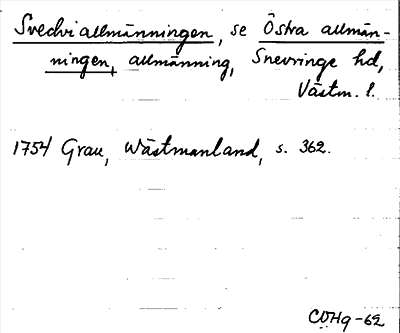 Svedvi allmänningen, se Östra allmän-
ningen, allmänning, Snevringe hd,
Västm. l.
1754 Grau, Wästmanland, s. 362.
CDHg-62